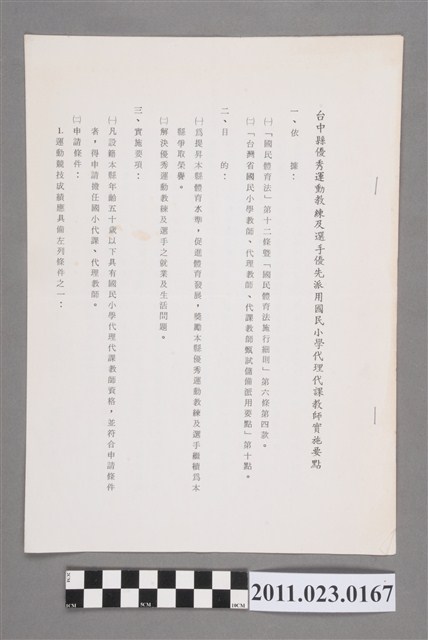 台中縣優秀運動教練及選手優先派用國民小學代理代課教師實施要點
一、依　據：
㈠「國民體育法」第十二條暨「國民體育法施行細則」第六條第四款。
㈡「台灣省國民小學教師、代理教師、代課教師甄試儲備派用要點」第十點。
二、目　的：
㈠為提昇本縣體育水準，促進體育發展，獎勵本縣優秀運動教練及選手繼續為本
縣爭取榮譽。
㈡解決優秀運動教練及選手之就業及生活問題。
三、實施要項：
㈠凡設籍本縣年齡五十歲以下具有國民小學代理代課教師資格，並符合申請條件
者，得申請擔任國小代課、代理教師。
㈡申請條件：
1.運動競技成績應具備左列條件之一：
0CM 5CM 10CM
2011.023.0167